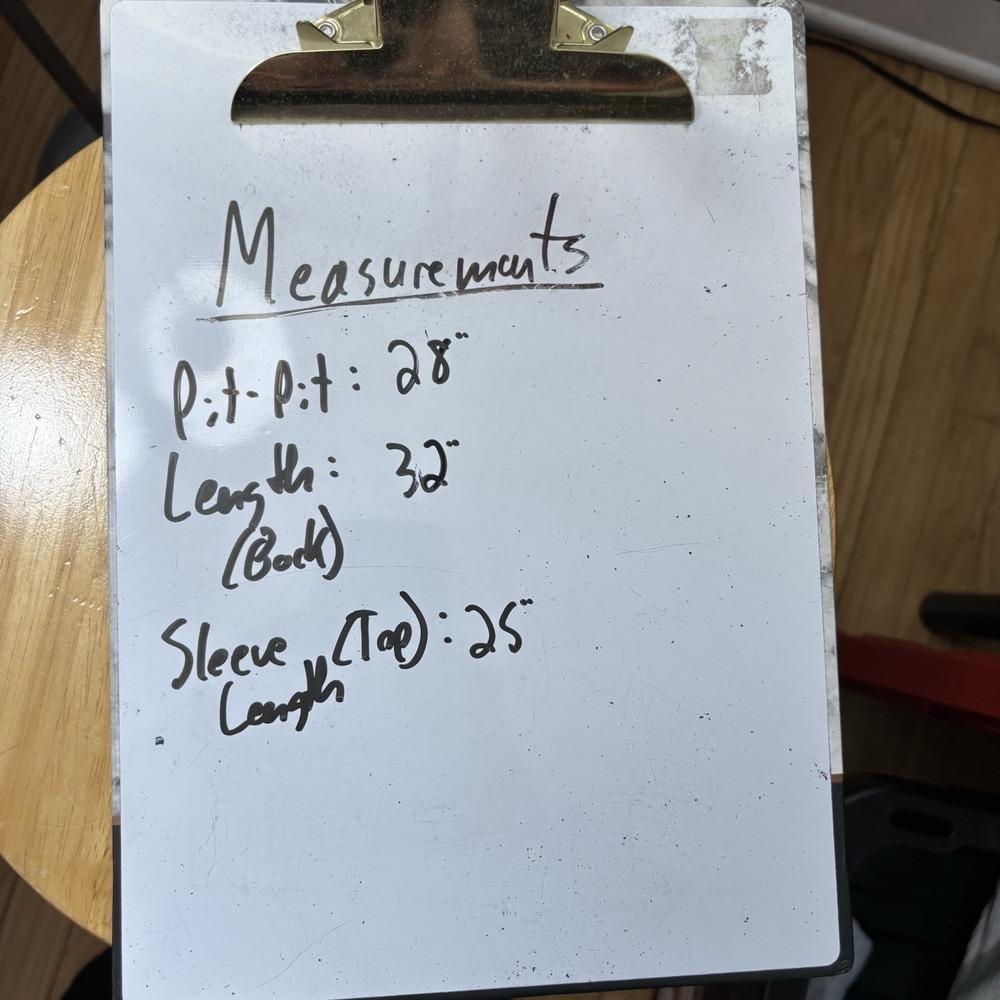 Measurements
Pit-Pit: 28"
Length: 32"
(Back)
Sleeve (Top): 25"
Length